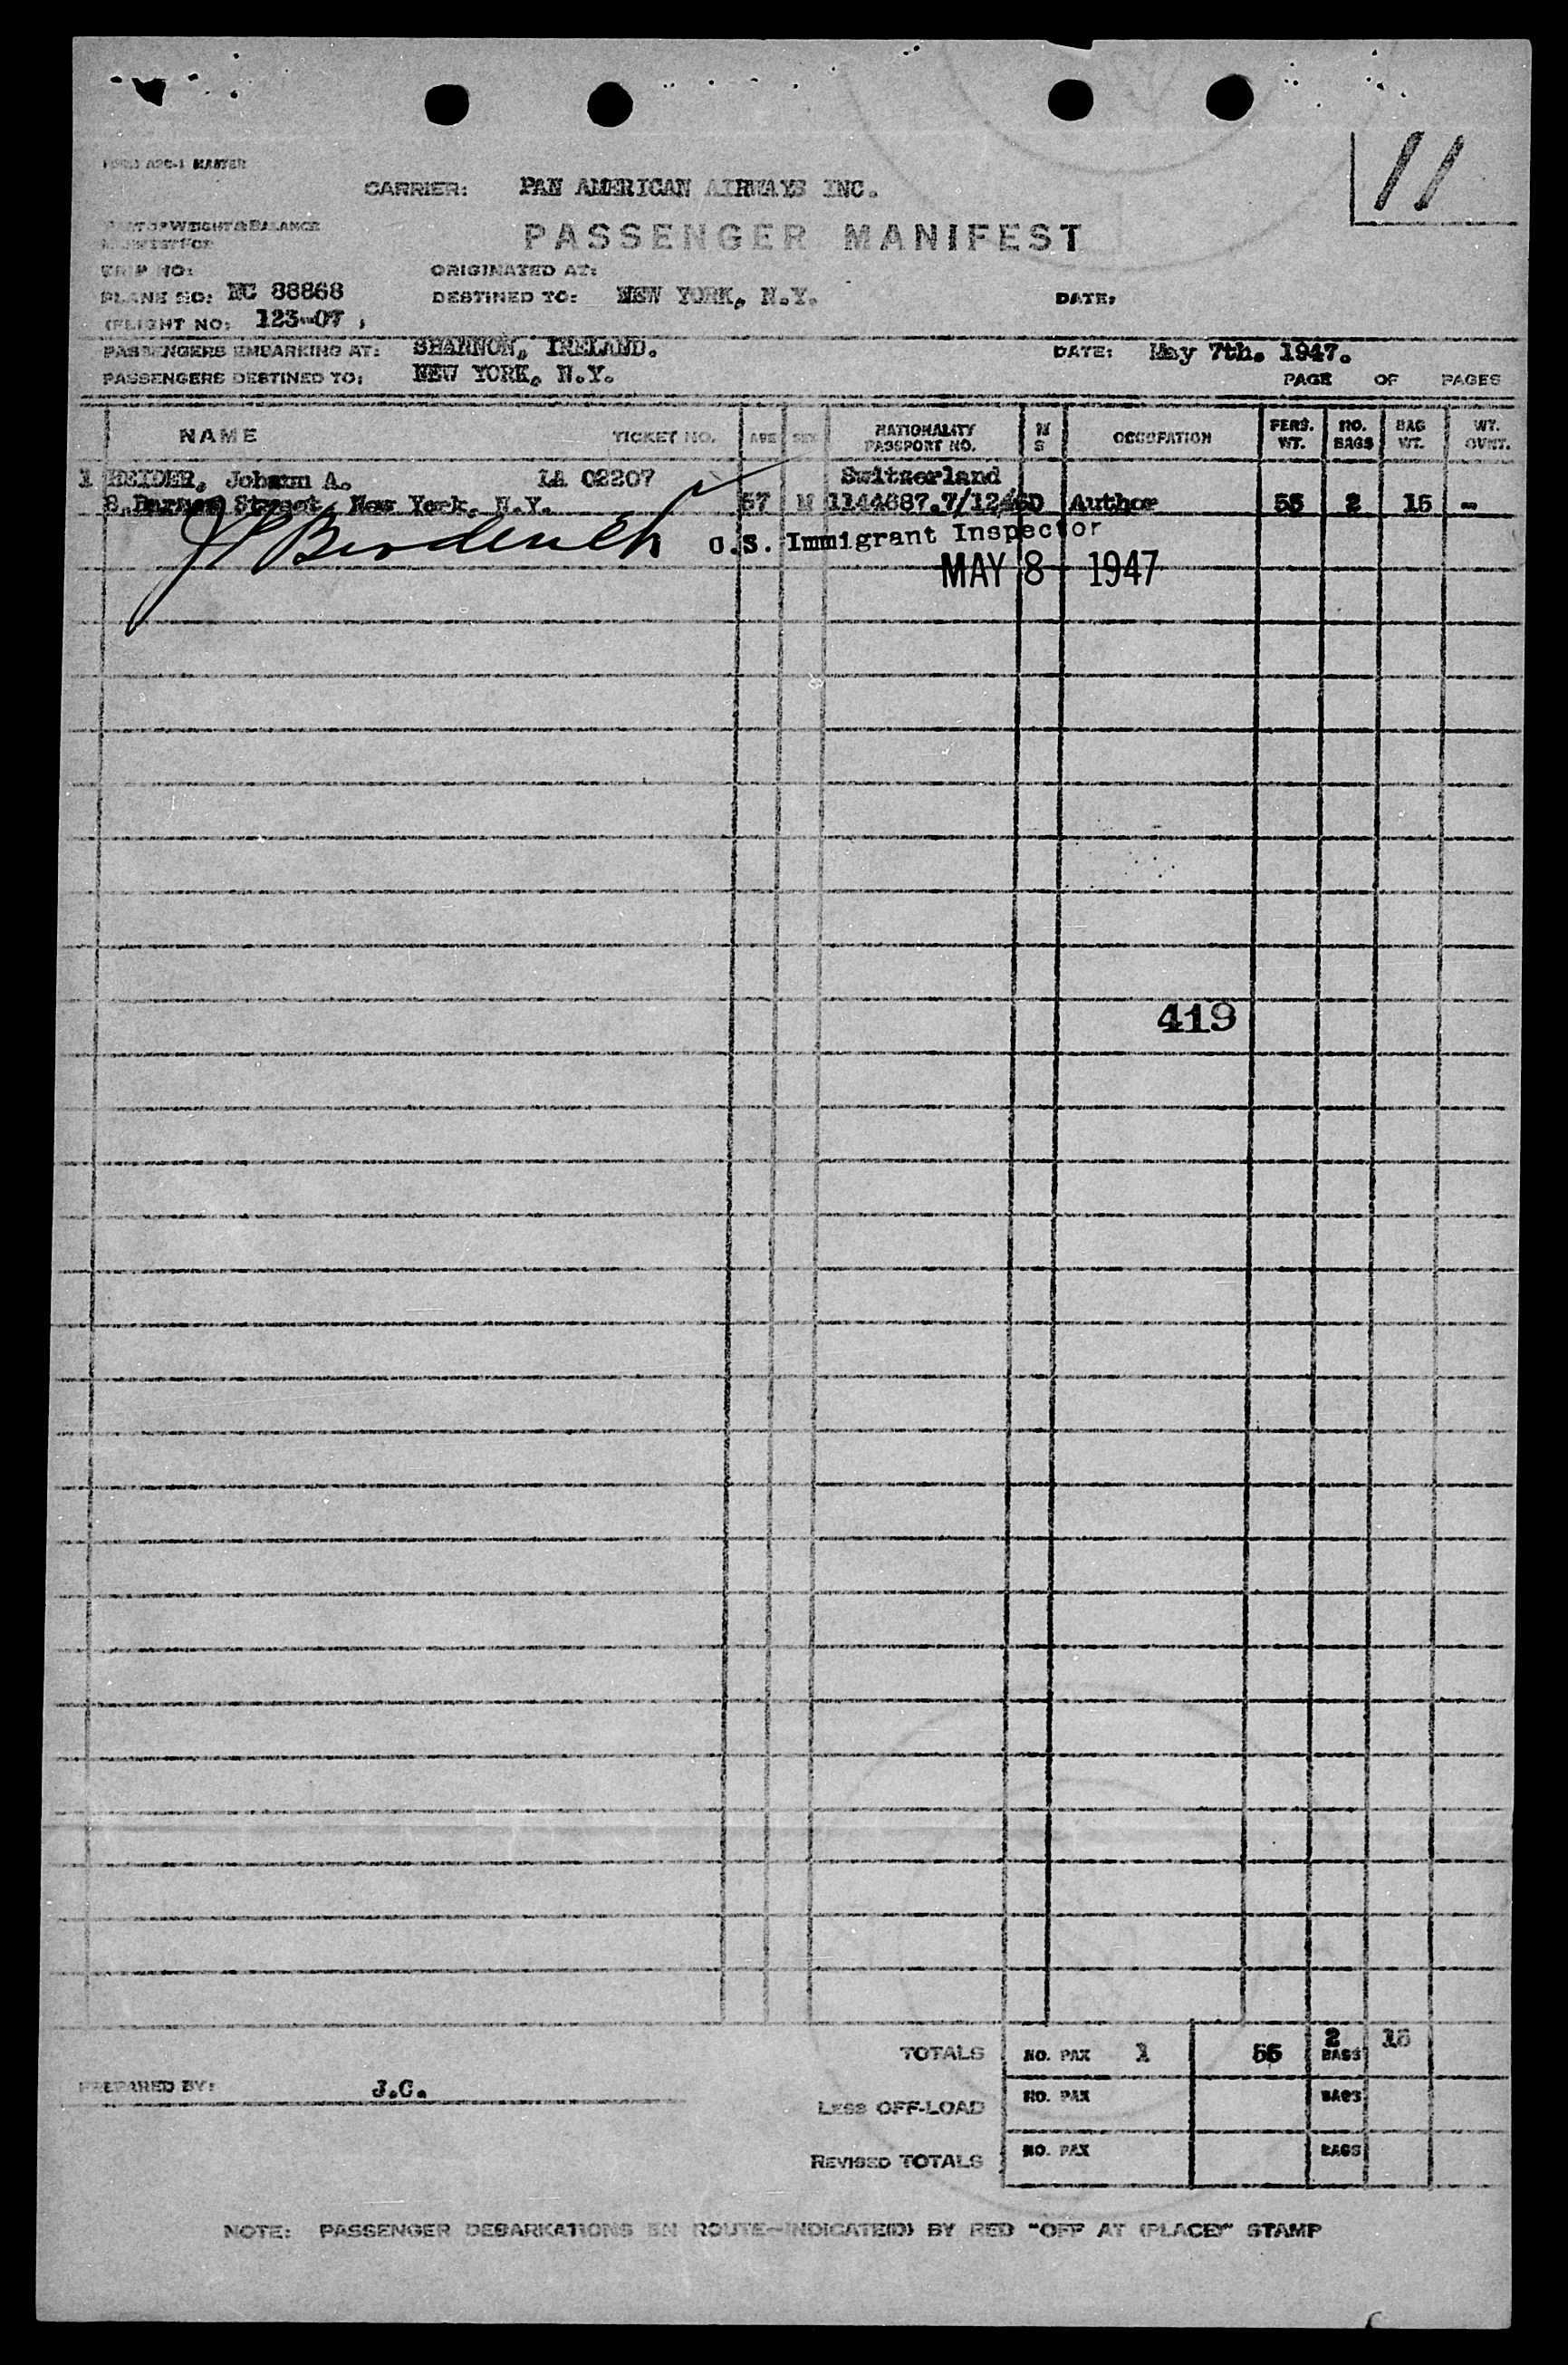 FORM ARC-1 MASTER
11
CARRIER: PAN AMERICAN AIRWAYS INC.
PART OF WEIGHT & BALANCE
MANIFEST FOR
PASSENGER MANIFEST
TRIP NO: ORIGINATED AT:
PLANE NO: NC 88868 DESTINED TO: NEW YORK, N.Y. DATE:
(FLIGHT NO: 123-07 )
PASSENGERS EMBARKING AT: SHANNON, IRELAND. DATE: May 7th. 1947.
PASSENGERS DESTINED TO: NEW YORK, N.Y. PAGE OF PAGES
NAME TICKET NO. AGE SEX NATIONALITY PASSPORT NO. M S OCCUPATION PERS. WT. NO. BAGS BAG WT. WT. OVWT.
1 Johann A. LA 02207 Switzerland
Street, New York, N.Y. 57 M D Author 2 15 -
U.S. Immigrant Inspector
MAY 8 1947
419
TOTALS NO. PAX 1 2 BAGS 15
PREPARED BY:
LESS OFF-LOAD NO. PAX BAGS
REVISED TOTALS NO. PAX BAGS
NOTE: PASSENGER DEBARKATIONS EN ROUTE—INDICATE(D) BY RED "OFF AT (PLACE)" STAMP